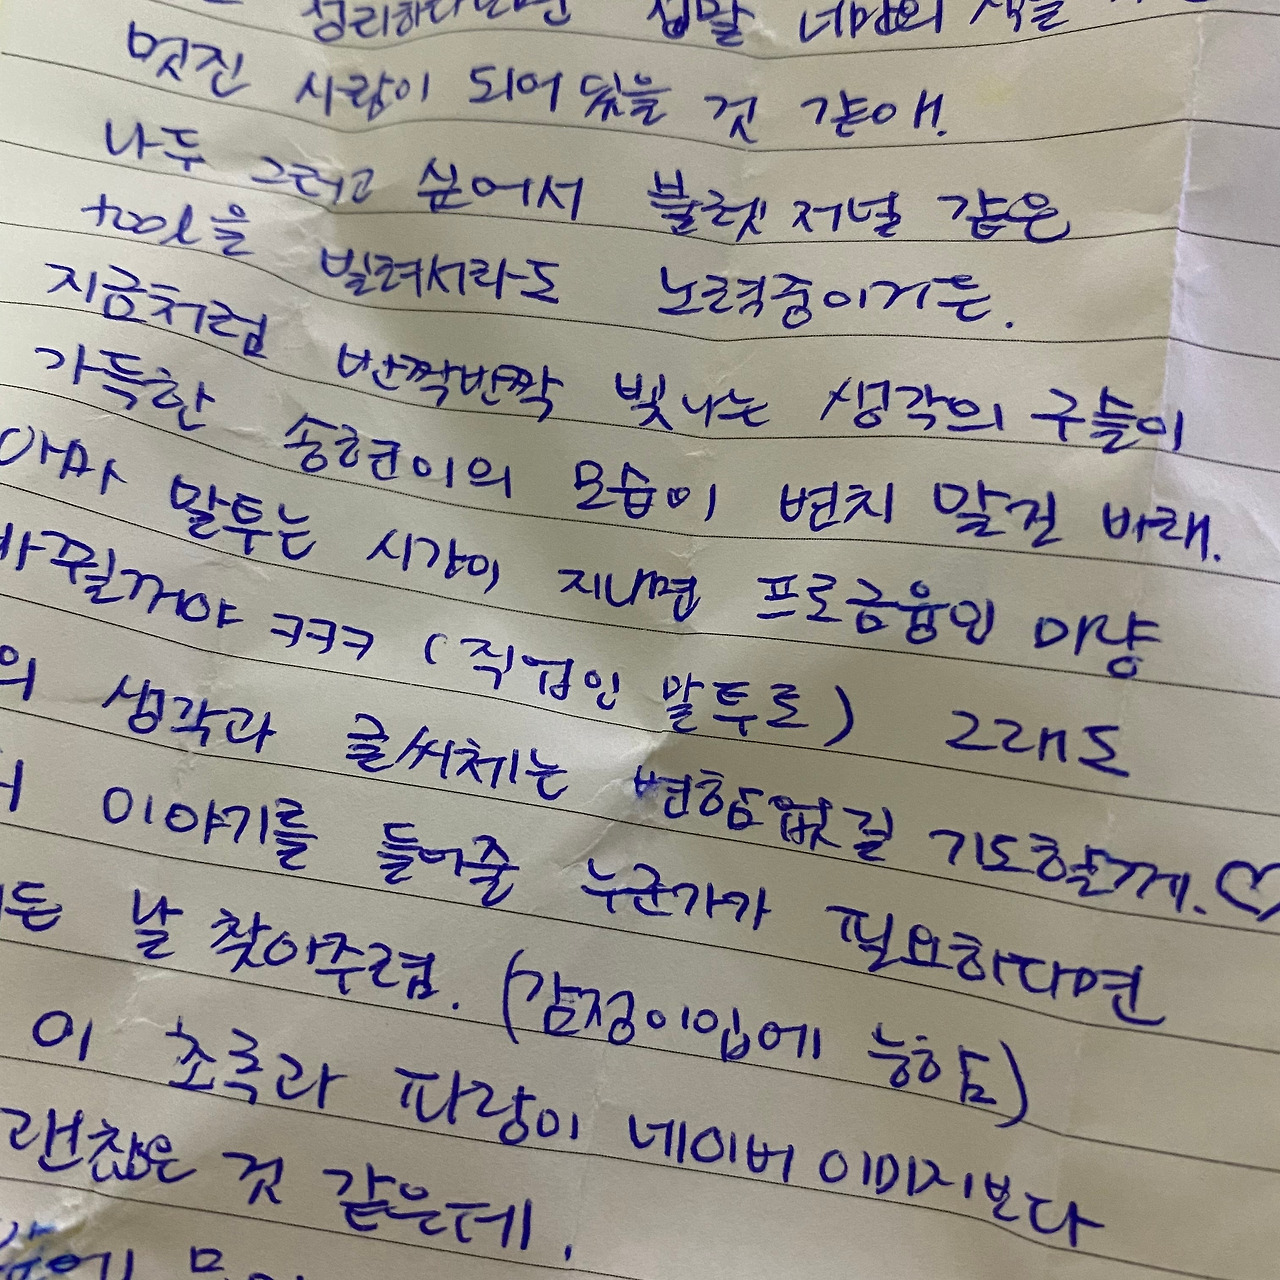 정리하다보면 정말 너만의 색을
멋진 사람이 되어 있을 것 같애.
나두 그러고 싶어서 불렛저널 같은
tool을 빌려서라도 노력중이거든.
지금처럼 반짝반짝 빛나는 생각의 구슬이
가득한 송현이의 모습이 변치 말길 바래.
아마 말투는 시간이 지나면 프로금융인 마냥
바뀔꺼야 ㅋㅋㅋ (직업인 말투로) 그래도
의 생각과 글씨체는 변함없길 기도할께. ♡
이야기를 들어줄 누군가가 필요하다면
든 날 찾아주렴. (감정이입에 능함)
이 초록과 파랑이 네이버 이미지보다
괜찮은 것 같은데.